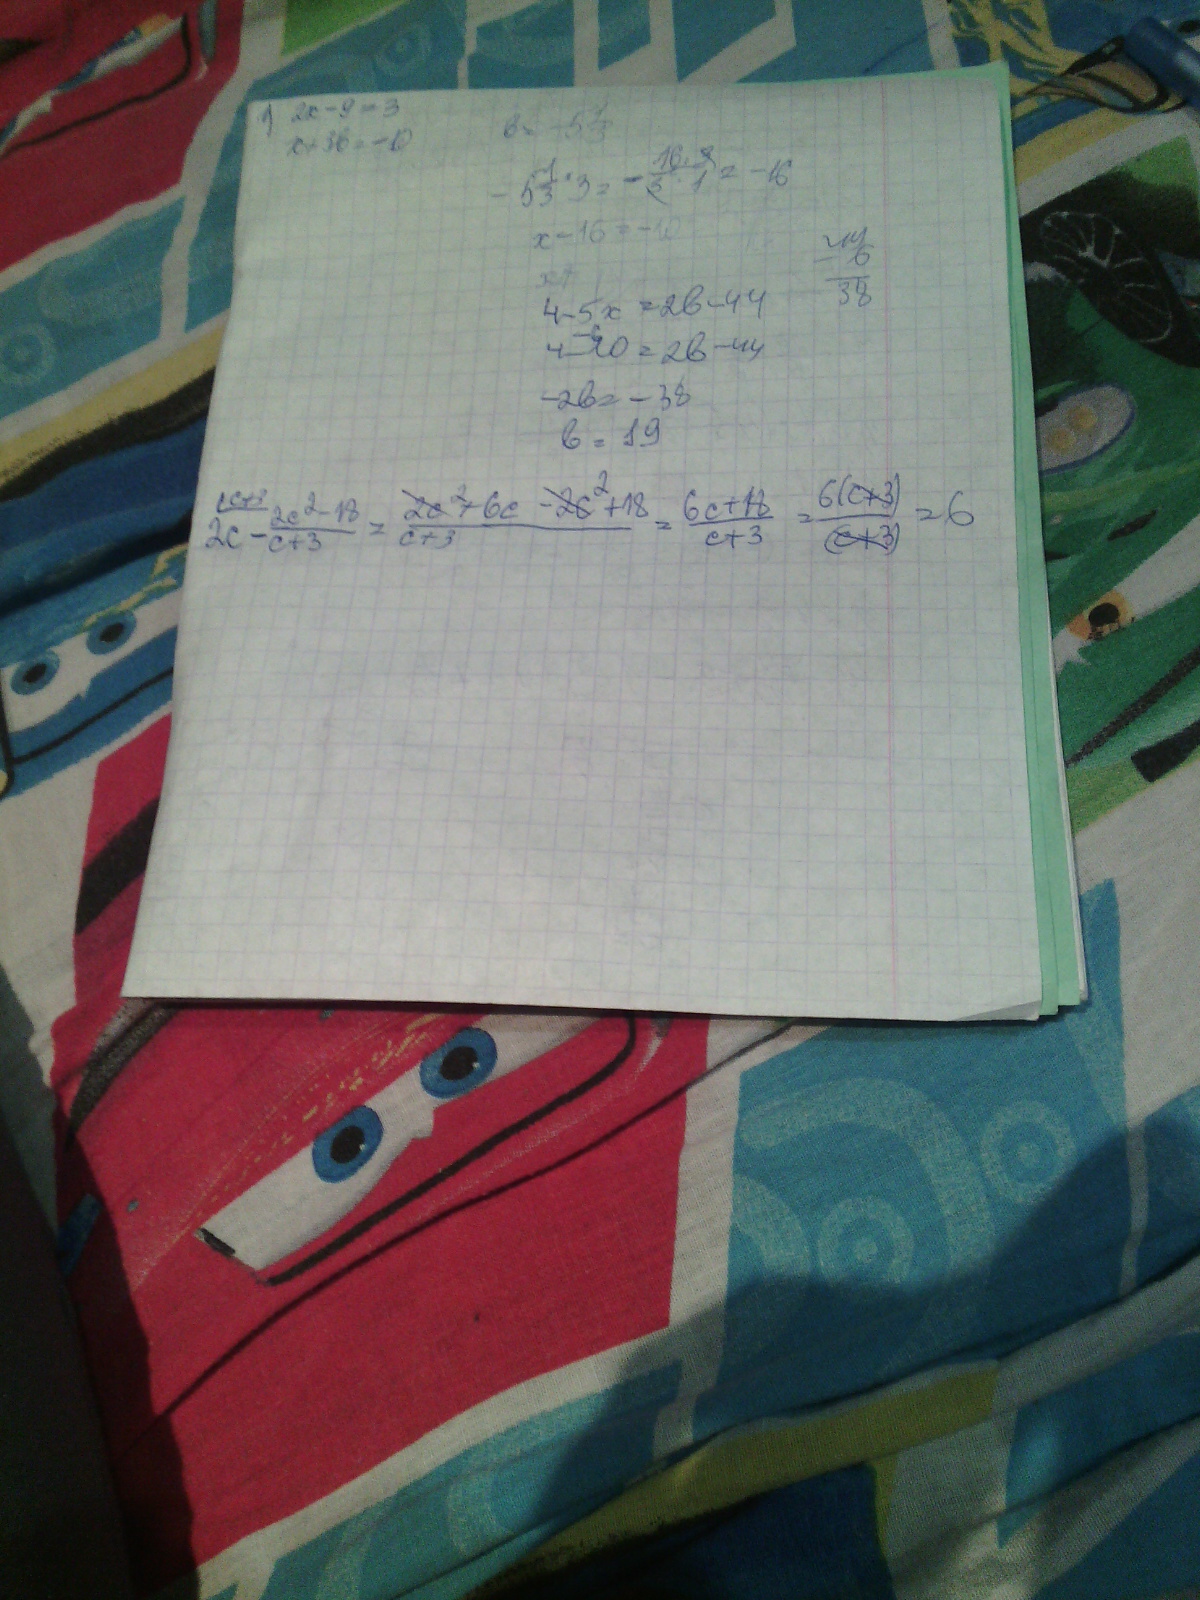 1) 2x-9=3
x+3b=-10
b= -5 1/3
-5 1/3 · 3 = - 16·3/3·1 = -16
x-16=-10
x+
44
- 6
38
4-5x = 2b-44
4-10 = 2b-44
-2b = -38
b = 19
2c - 2c²-18/c+3 = 2c²+6c -2c²+18/c+3 = 6c+18/c+3 = 6(c+3)/(c+3) = 6